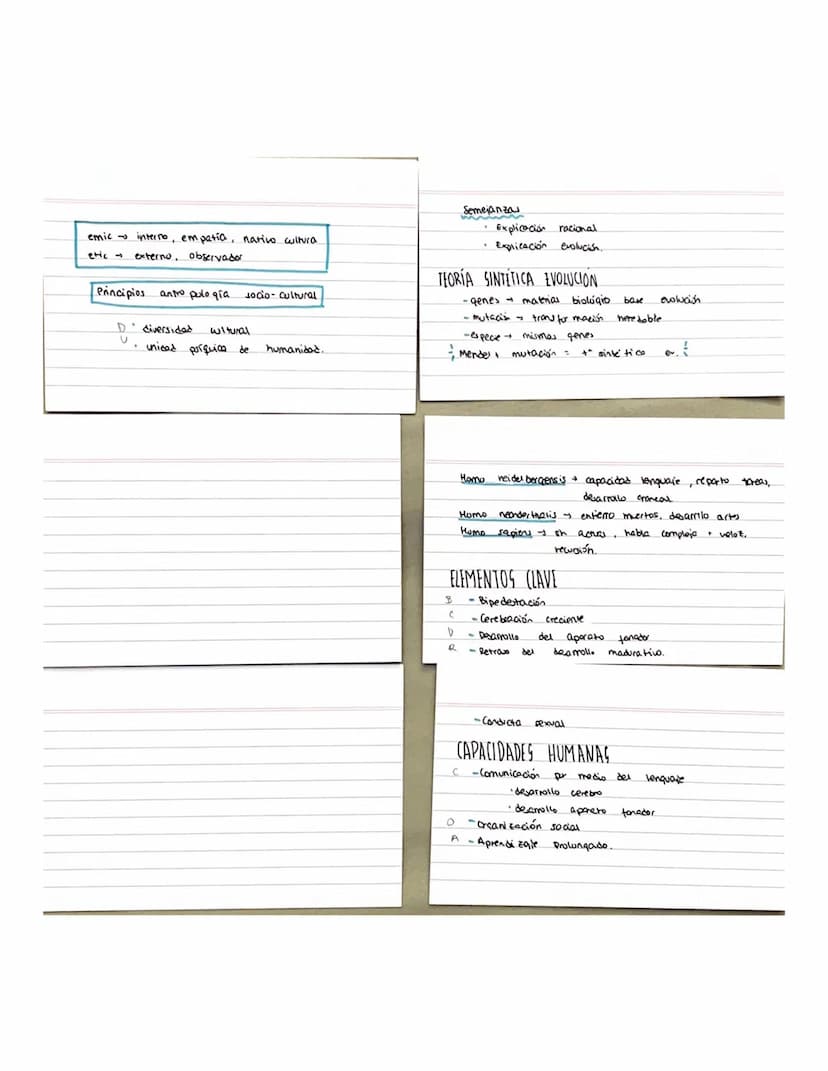 emic → interno, empatía, nativo cultura
etic → externo, observador
Principios antropología socio-cultural
D · diversidad cultural
U · unidad psíquica de humanidad.
Semejanzas
· Explicación racional
· Explicación evolución.
TEORÍA SINTÉTICA EVOLUCIÓN
- genes → material biológico base evolución
- mutación → transformación heredable
- especie → mismos genes
Mendel + mutación = tª sintético ev.
Homo heidelbergensis → capacidad lenguaje, reparto tareas,
desarrollo craneal
Homo neanderthalis → entierro muertos, desarrollo artes
Homo sapiens → habla compleja + veloz,
ELEMENTOS CLAVE
B - Bipedestación
C - Cerebración creciente
D - Desarrollo del aparato fonador
R - Retraso del desarrollo madurativo.
- Conducta sexual
CAPACIDADES HUMANAS
C - Comunicación por medio del lenguaje
· desarrollo cerebro
· desarrollo aparato fonador
O - Organización social
A - Aprendizaje prolongado.